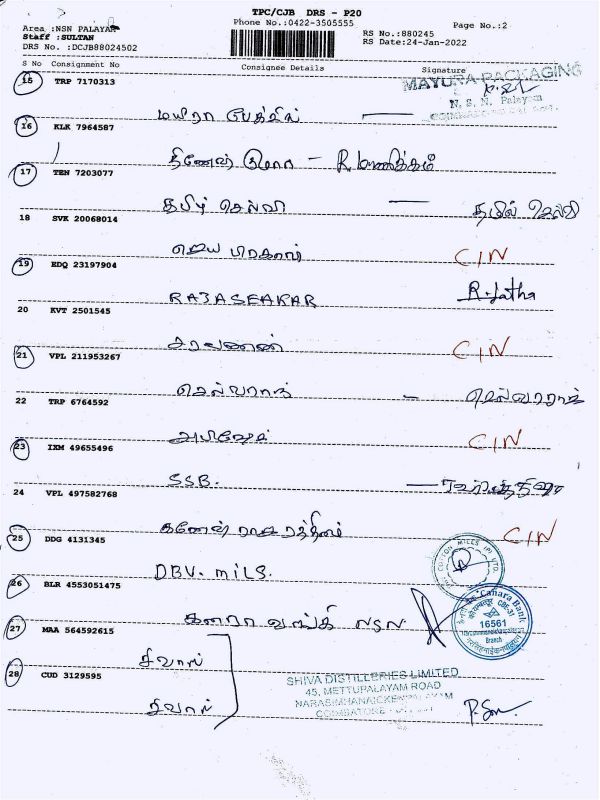 TPC/CJB DRS - P20
Area :NSN PALAYAM Phone No.:0422-3505555 Page No.:2
Staff :SULTAN RS No.:880245
DRS No. :DCJB88024502 RS Date:24-Jan-2022
S No Consignment No Consignee Details Signature
15 TRP 7170313 MAYURA PACKAGING
N. S. N. Palayam
மயிரா
16 KLK 7964587
R மாணிக்கம்
17 TEN 7203077
தமிழ் செல்வி — தமிழ் செல்வி
18 SVK 20068014
ஜெய பிரகாஷ் CIN
19 EDQ 23197904
RAJASEAKAR R. Latha
20 KVT 2501545
சரவணன் CIN
21 VPL 211953267
செல்வராஜ் — செல்வராஜ்
22 TRP 6764592
அபிஷேக் CIN
23 IXM 49655496
SSB. —
24 VPL 497582768
CIN
25 DDG 4131345
COTTON MILLS (P) LTD.
DBV. MILS.
26 BLR 4553051475
கனரா வங்கி NSN. Canara Bank
CBE-31
16561
Branch
27 MAA 564592615
சிவாஸ்
28 CUD 3129595
SHIVA DISTILLERIES LIMITED
45, METTUPALAYAM ROAD
NARASIMHANAICKENPALAYAM
COIMBATORE
சிவாஸ்